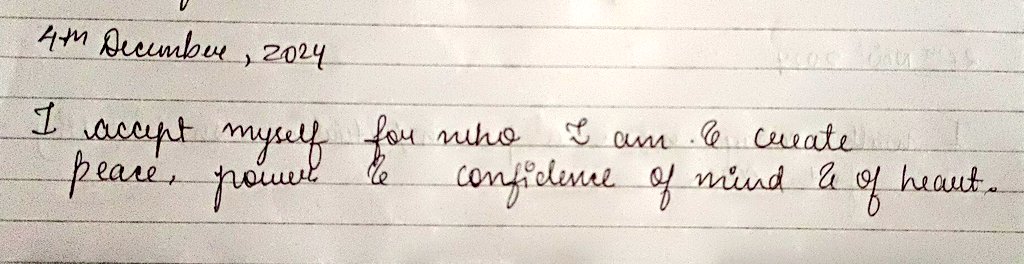 4th December, 2024
I accept myself for who I am & create
peace, power & confidence of mind & of heart.